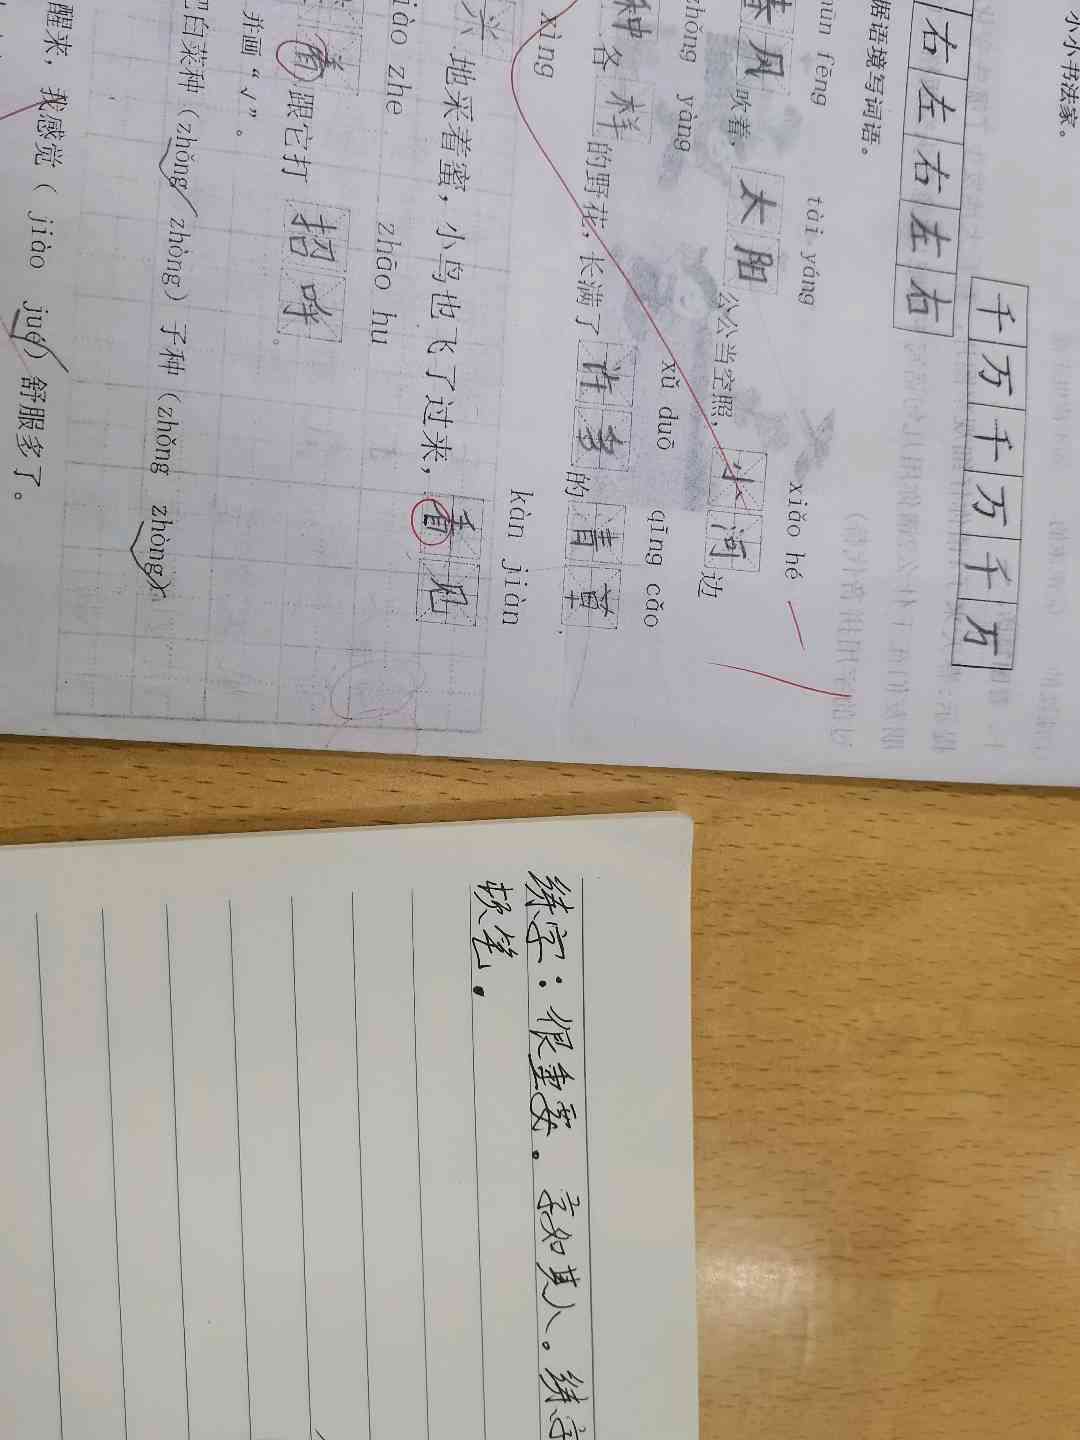 小小书法家。
千万千万千万
右左右左右
据语境写词语。
fēng tài yáng xiǎo hé
春风吹着，太阳公公当空照，小河边
zhǒng yàng xǔ duō qīng cǎo
种各样的野花，长满了许多的青草，
xìng kàn jiàn
兴地采着蜜，小鸟也飞了过来，看见
iào zhe zhāo hu
着跟它打招呼。
并画“√”。
把白菜种（zhǒng zhòng）子种（zhǒng zhòng）
醒来，我感觉（jiào jué）舒服多了。
练字：很重要。字如其人。练字